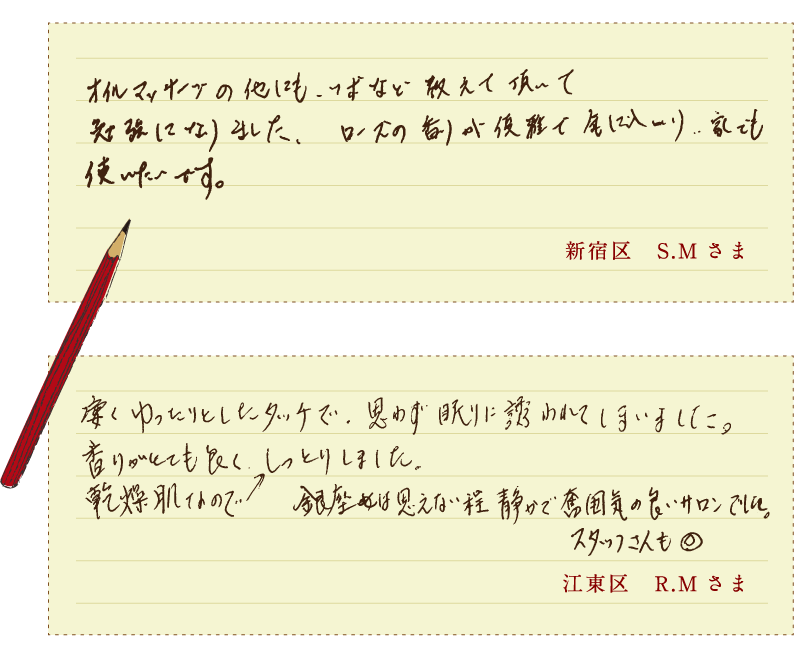 オイルマッサージの他にも、つぼなど教えて頂いて
勉強になりました。ローズの香りが優雅で気に入り、家でも
使いたいです。
新宿区 S.Mさま
凄くゆったりとしたタッチで、思わず眠りに誘われてしまいました。
香りがとても良く、しっとりしました。
乾燥肌なので 銀座とは思えない程静かで雰囲気の良いサロンでした。
スタッフさんも◎
江東区 R.Mさま